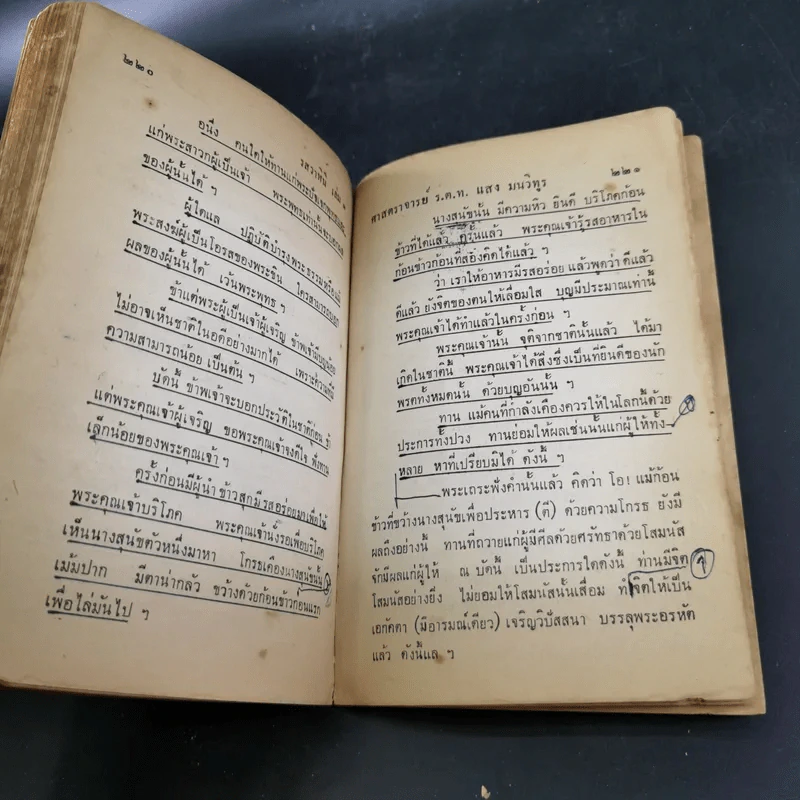 ๒๒๐
รสวาหินี เล่ม ๑
อนึ่ง คนใดให้ทานแก่พระปัจเจกพุทธเจ้า
แก่พระสาวกผู้เป็นเจ้า พระพุทธเท่านั้นจะบอกผล
ของผู้นั้นได้ ฯ
ผู้ใดแล ปฏิบัติบำรุงพระธรรมหรือแม้
พระสงฆ์ผู้เป็นโอรสของพระชิน ใครสามารถบอก
ผลของผู้นั้นได้ เว้นพระพุทธ ฯ
ข้าแต่พระผู้เป็นเจ้าผู้เจริญ ข้าพเจ้ามีบุญน้อย
ไม่อาจเห็นชาติในอดีตอย่างมากได้ เพราะความที่มี
ความสามารถน้อย เป็นต้น ฯ
บัดนี้ ข้าพเจ้าจะบอกประวัติในชาติก่อน
แต่พระคุณเจ้าผู้เจริญ ขอพระคุณเจ้าจงตั้งใจ ฟังทาน
เล็กน้อยของพระคุณเจ้า ฯ
ครั้งก่อนมีผู้นำข้าวสุกมีรสอร่อยมาเพื่อให้
พระคุณเจ้าบริโภค พระคุณเจ้านั่งรอเพื่อบริโภค
เห็นนางสุนัขตัวหนึ่งมาหา โกรธเคืองนางสุนัขนั้น
เม้มปาก มีตาน่ากลัว ขว้างด้วยก้อนข้าวก้อนแรก
เพื่อไล่มันไป ฯ
ศาสตราจารย์ ร.ต.ท. แสง มนวิทูร
๒๒๑
นางสุนัขนั้น มีความหิว ยินดี บริโภคก้อน
ข้าวที่ได้แล้ว ครั้นแล้ว พระคุณเจ้ารู้รสอาหารใน
ก้อนข้าวก้อนที่สองคิดได้แล้ว ฯ
ว่า เราให้อาหารมีรสอร่อย แล้วพูดว่า ดีแล้ว
ดีแล้ว ยังจิตของตนให้เลื่อมใส บุญมีประมาณเท่านี้
พระคุณเจ้าได้ทำแล้วในครั้งก่อน ฯ
พระคุณเจ้านั้น จุติจากชาตินั้นแล้ว ได้มา
เกิดในชาตินี้ พระคุณเจ้าได้สิ่งซึ่งเป็นที่ยินดีของนัก
พรตทั้งหมดนั้น ด้วยบุญอันนั้น ฯ
ทาน แม้คนที่กำลังเคืองควรให้ในโลกนี้ด้วย
ประการทั้งปวง ทานย่อมให้ผลเช่นนั้นแก่ผู้ให้ทั้ง
หลาย หาที่เปรียบมิได้ ดังนี้ ฯ
พระเถระฟังคำนั้นแล้ว คิดว่า โอ! แม้ก้อน
ข้าวที่ขว้างนางสุนัขเพื่อประหาร (ตี) ด้วยความโกรธ ยังมี
ผลถึงอย่างนี้ ทานที่ถวายแก่ผู้มีศีลด้วยศรัทธาด้วยโสมนัส
จักมีผลแก่ผู้ให้ ณ บัดนี้ เป็นประการใดดังนี้ ท่านมีจิต
โสมนัสอย่างยิ่ง ไม่ยอมให้โสมนัสนั้นเสื่อม ทำจิตให้เป็น
เอกัคตา (มีอารมณ์เดียว) เจริญวิปัสสนา บรรลุพระอรหัต
แล้ว ดังนี้แล ฯ